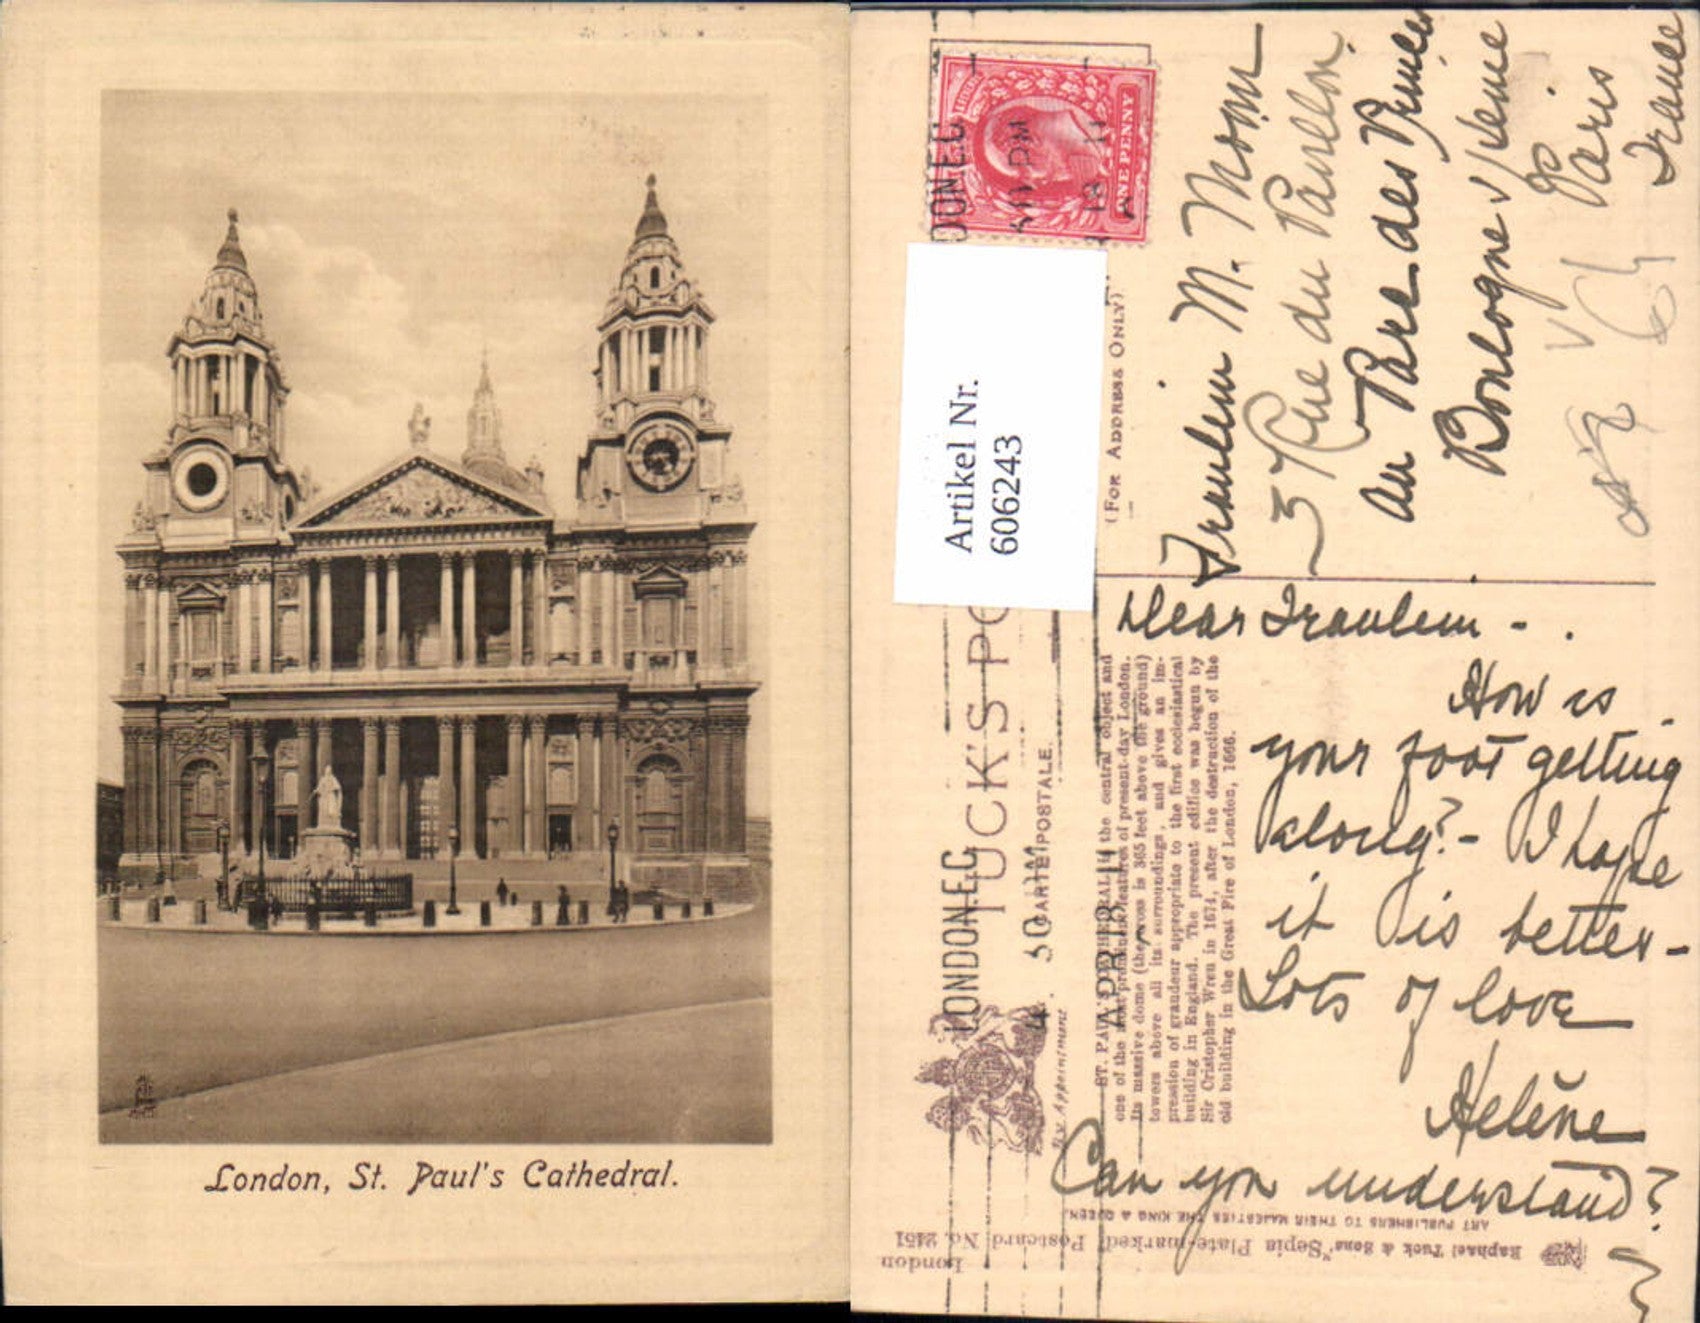 London, St. Paul's Cathedral.
ONE PENNY
DON.E.C
PM
11
Artikel Nr.
606243
(FOR ADDRESS ONLY)
TUCK'S PO
CARTE POSTALE.
By Appointment.
LONDON.E.C
APR 18 11
Fraulein M. Mom
3 Rue du Pavillon
au Parc des Princes
Boulogne s/ Seine
Paris
France
ST. PAUL'S CATHEDRAL is the central object and
one of the most prominent features of present-day London.
Its massive dome (the cross is 365 feet above the ground)
towers above all its surroundings, and gives an im-
pression of grandeur appropriate to the first ecclesiastical
building in England. The present edifice was begun by
Sir Cristopher Wren in 1674, after the destruction of the
old building in the Great Fire of London, 1666.
Dear Fraulein - .
How is
your foot getting
along? - I hope
it is better -
Lots of love
Helène
Can you understand?
Raphael Tuck & Sons' "Sepia Plate-marked" Postcard No. 2451
London
ART PUBLISHERS TO THEIR MAJESTIES THE KING & QUEEN.